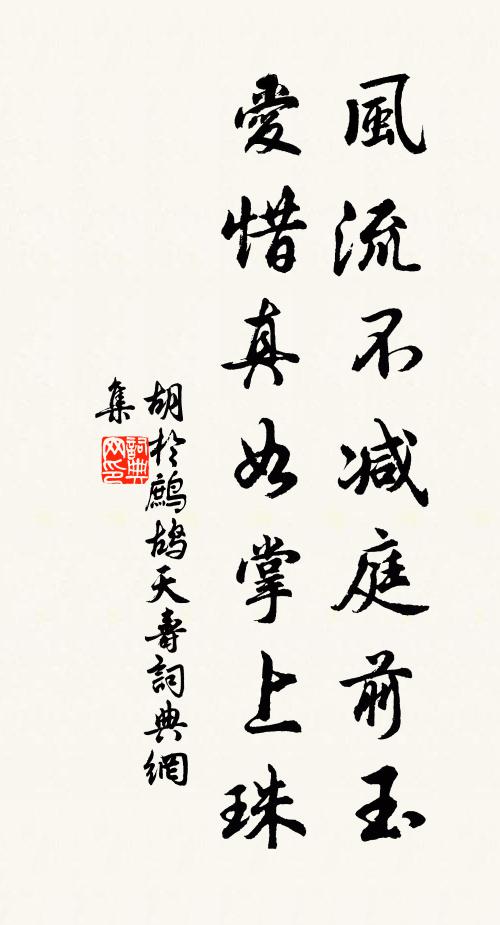 風流不減庭前玉
愛惜真如掌上珠
胡於鷓鴣天壽詞典網
集
詞典
网印